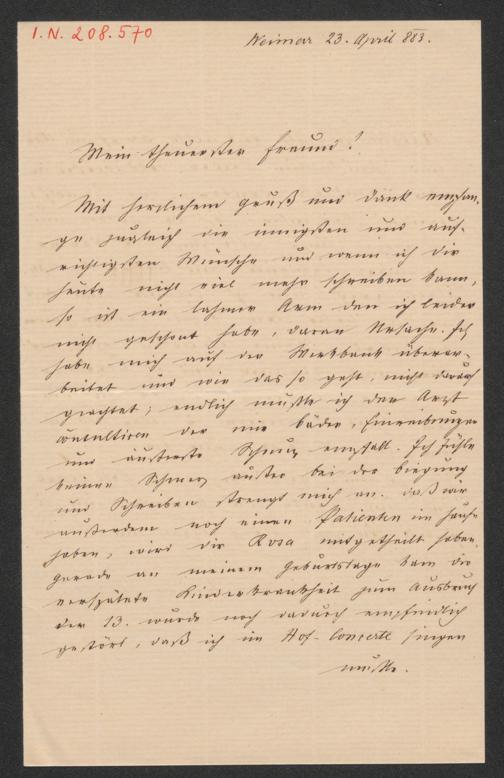 I. N. 208.570
Weimar 23. April 883.
Mein theuerster Freund!
Mit herzlichem Gruß und Dank empfan-
ge zugleich die innigsten und auf-
richtigsten Wünsche und wenn ich dir
heute nicht viel mehr schreiben kann,
so ist ein lahmer Arm den ich leider
nicht geschont habe, daran Ursache. Ich
habe mich auf der Werkbank überar-
beitet und wie das so geht, nicht darauf
geachtet; endlich mußte ich den Arzt
consultiren der mir Bäder, Einreibungen
und äußerste Schonung empfahl. Ich fühle
keinen Schmerz außer bei der Biegung
und Schreiben strengt mich an. Daß wir
außerdem noch einen Patienten im Hause
haben, wird dir Rosa mitgetheilt haben.
Gerade an meinem Geburtstage kam die
verspätete Kinderkrankheit zum Ausbruch
der 13. wurde noch dadurch empfindlich
gestört, daß ich im Hof-Concerte singen
mußte.